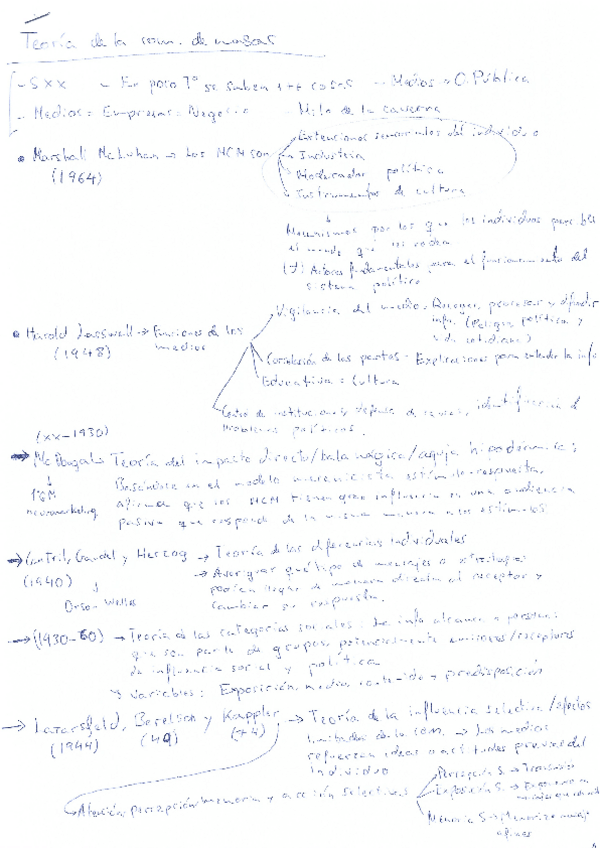 Teoría de la com. de masas
- SXX - En poco Tº se saben ++ cosas - Medios → O. Pública
- Medios = Empresas = Negocio - Mito de la caverna
• Marshall McLuhan → Los MCM son
(1964)
Extensiones sensoriales del individuo
Industria
Moderador político
Instrumentos de cultura
Mecanismos por los que los individuos perciben
el mundo que les rodea
Actores fundamentales para el funcionamiento del
sistema político
• Harold Lasswell → Funciones de los
medios
(1948)
Vigilancia del medio. Recoger, procesar y difundir
info. (Peligro, política y
vida cotidiana)
Correlación de las partes - Explicaciones para entender la info
Educativa : Cultura
políticos.
(XX-1930)
→ McDougal → Teoría del impacto directo/bala mágica/aguja hipodérmica:
1ªGM
neuromarketing
Basándose en el modelo mecanicista estímulo-respuesta,
afirma que los MCM tienen gran influencia en una audiencia
pasiva que responde de la misma manera a los estímulos.
→ Cantril, Gaudet y Herzog → Teoría de las diferencias individuales
(1940)
Orson Welles
→ Averiguar qué tipo de mensajes o estrategias
podrían llegar de manera directa al receptor y
cambiar su respuesta.
→ (1930-60) → Teoría de las categorías sociales: La info alcanza a personas
que son parte de grupos, potencialmente emisores/receptores
de influencia social y política
Variables: Exposición, medio, contenido y predisposición
→ Lazarsfeld, Berelson y Kappler → Teoría de la influencia selectiva/efectos
(1944) (49) (74)
limitados de la com. → Los medios
refuerzan ideas o actitudes previas del
individuo
Atención, percepción, memoria y acción selectivas
Percepción S. →
Exposición S. →
Memoria S. → Memoriza
afines